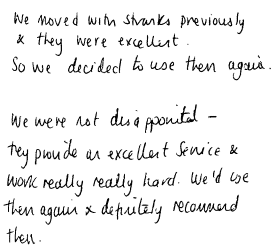 We moved with Shanks previously
& they were excellent.
So we decided to use them again.
We were not disappointed –
they provide an excellent service &
work really really hard. We'd use
them again & definitely recommend
them.